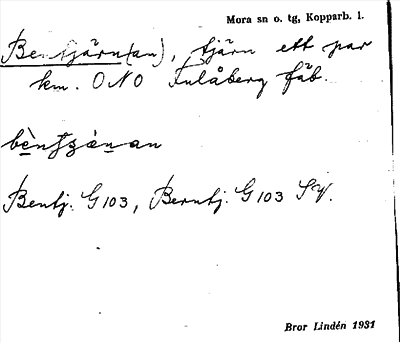 Mora sn o. tg, Kopparb. l.
Bentjärn(an), tjärn ett par
km. ONO Fulåberg fäb.
Bentj. G103, Berntj. G103 SV.
Bror Lindén 1931